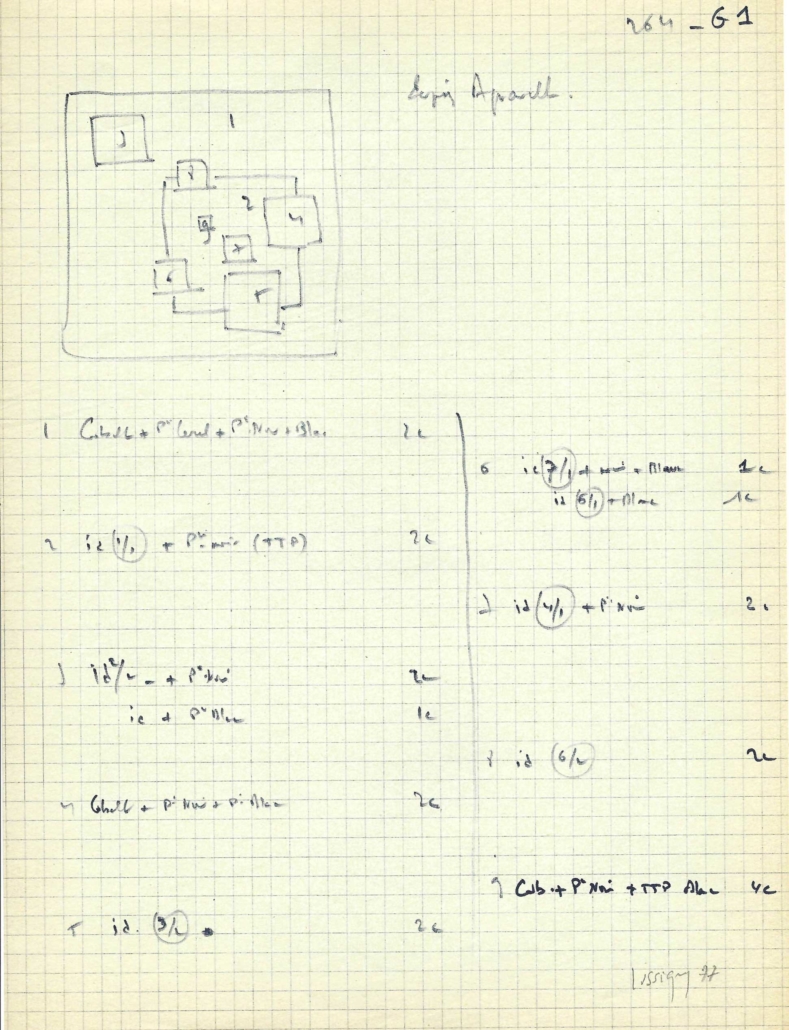 264 - G1
1
3
8
2
4
9
7
6
5
1 Cobalt + Pt + Pt Noir + Blanc 2c
2 id (1/1) + Pt noir (TTP) 2c
3 id 2/2 - + Pt Noir 2c
id + Pt Blanc 1c
4 Cobalt + Pt Noir + Pt Blanc 2c
5 id. (3/2) 2c
6 id (7/1) + noir + Blanc 1c
id (6/1) + Blanc 1c
7 id (4/1) + Pt Noir 2c
8 id (6/2) 2c
9 Cob. + Pt Noir + TTP Blanc 4c
Lissigny 77